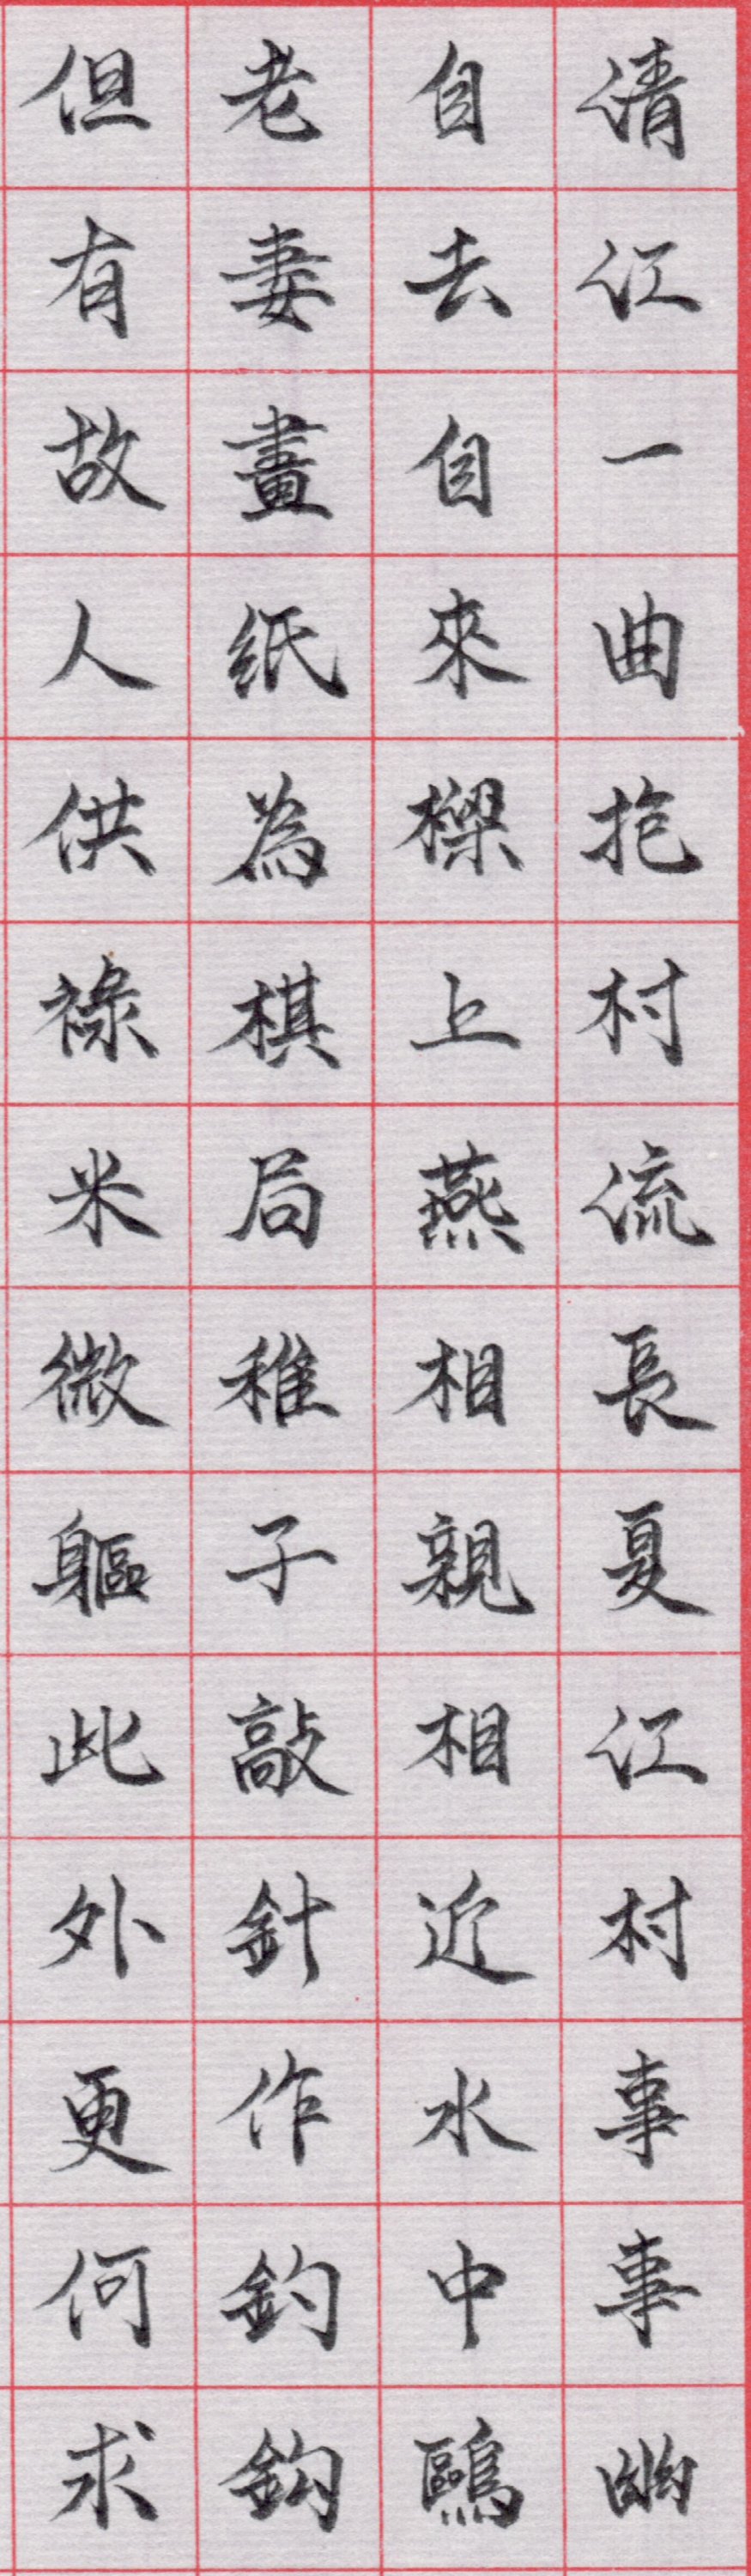 清江一曲抱村流長夏江村事事幽
自去自來樑上燕相親相近水中鷗
老妻畫紙為棋局稚子敲針作釣鈎
但有故人供祿米微軀此外更何求